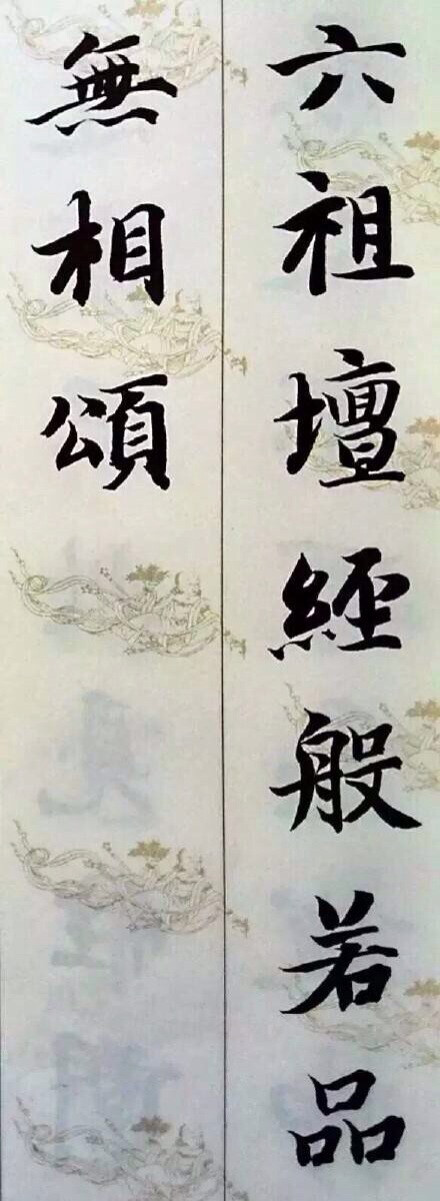 六祖壇經般若品
無相頌